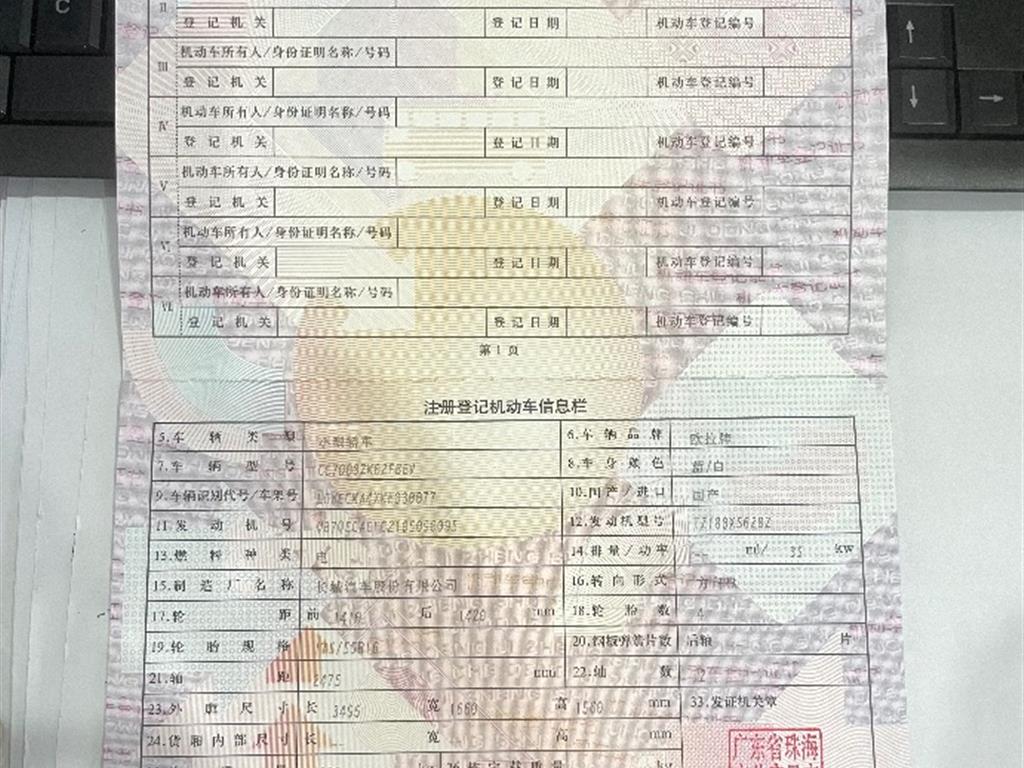 II 登记机关 登记日期 机动车登记编号
III 机动车所有人/身份证明名称/号码
登记机关 登记日期 机动车登记编号
IV 机动车所有人/身份证明名称/号码
登记机关 登记日期 机动车登记编号
V 机动车所有人/身份证明名称/号码
登记机关 登记日期 机动车登记编号
VI 机动车所有人/身份证明名称/号码
登记机关 登记日期 机动车登记编号
VII 机动车所有人/身份证明名称/号码
登记机关 登记日期 机动车登记编号
第1页
注册登记机动车信息栏
5.车辆类型 小型轿车 6.车辆品牌 欧拉牌
7.车辆型号 8.车身颜色 蓝/白
9.车辆识别代号/车架号 10.国产/进口 国产
11.发动机号 12.发动机型号
13.燃料种类 电 14.排量/功率 -- ml/ 35 kw
15.制造厂名称 长城汽车股份有限公司 16.转向形式 方向盘
17.轮距 前 1410 后 1420 mm 18.轮胎数 4
19.轮胎规格 20.钢板弹簧片数 后轴 片
21.轴距 2475 mm 22.轴数 2
23.外廓尺寸 长 3495 宽 1660 高 1560 mm 33.发证机关章
24.货厢内部尺寸 长 宽 高 mm
广东省珠海
C
↑
↓
→